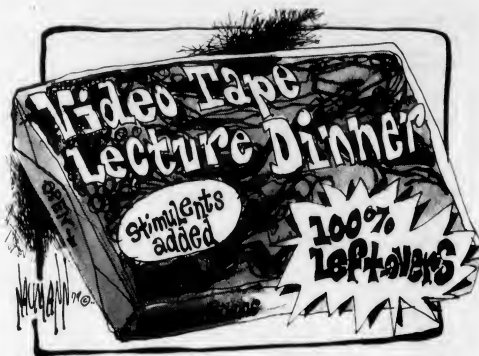 Video Tape
Lecture Dinner
stimulents
added
100%
leftovers
OPEN
NAUMANN